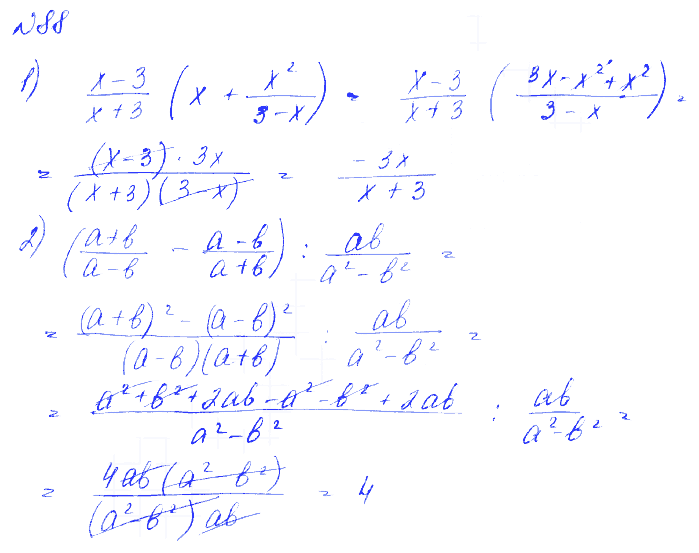 N88
1) \frac{x-3}{x+3} (x + \frac{x^2}{3-x}) = \frac{x-3}{x+3} (\frac{3x-x^2+x^2}{3-x}) =
= \frac{(x-3) \cdot 3x}{(x+3)(3-x)} = \frac{-3x}{x+3}
2) (\frac{a+b}{a-b} - \frac{a-b}{a+b}) : \frac{ab}{a^2-b^2} =
= \frac{(a+b)^2-(a-b)^2}{(a-b)(a+b)} : \frac{ab}{a^2-b^2} =
= \frac{a^2+b^2+2ab-a^2-b^2+2ab}{a^2-b^2} : \frac{ab}{a^2-b^2} =
= \frac{4ab(a^2-b^2)}{(a^2-b^2)ab} = 4